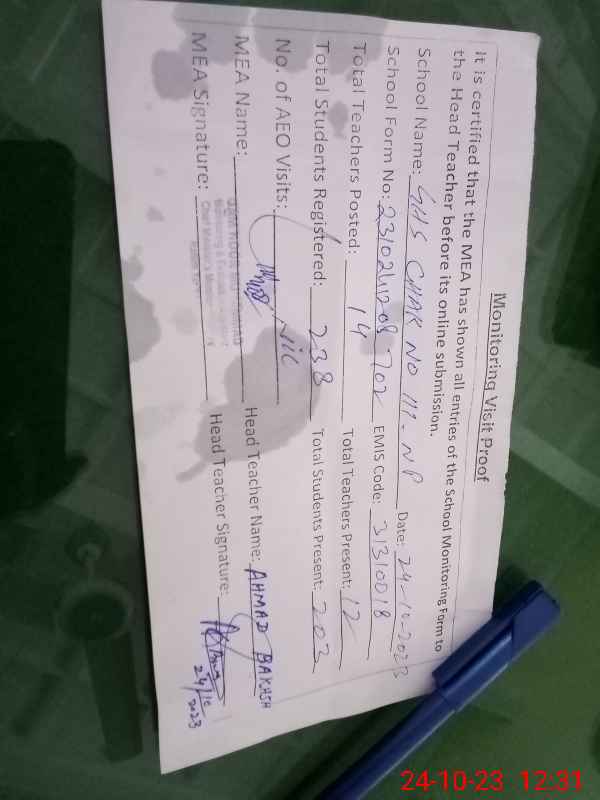 Monitoring Visit Proof
It is certified that the MEA has shown all entries of the School Monitoring Form to
the Head Teacher before its online submission.
School Name: GHS CHAK NO 111-NP Date: 24-10-2023
School Form No: 23102411208702 EMIS Code: 31310018
Total Teachers Posted: 14 Total Teachers Present: 12
Total Students Registered: 238 Total Students Present: 203
No. of AEO Visits: Nil
MEA Name: Head Teacher Name: AHMAD BAKHSH
MEA Signature: Head Teacher Signature:
24/10
2023
24-10-23 12:31